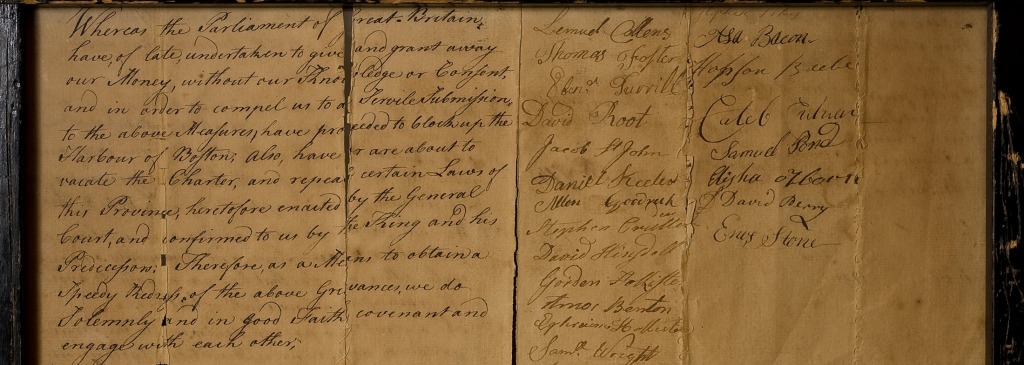 Whereas the Parliament of Great-Britain,
have, of late, undertaken to give and grant away
our Money, without our Knowledge or Consent,
and in order to compel us to a Servile Submission,
to the above Measures, have proceeded to block up the
Harbour of Boston; Also, have or are about to
vacate the Charter, and repeal certain Laws of
this Province, heretofore enacted by the General
Court, and confirmed to us by the King and his
Predecessors; Therefore, as a Means to obtain a
Speedy Redress of the above Grievances, we do
Solemnly and in good Faith covenant and
engage with each other;
Lemuel
Thomas Foster
Eben.r Turrill
David Root
Jacob St John
Daniel Keeler
Allen Goodrich
Stephen
David Hinsdell
Gordon
Amos Benton
Ephraim Hollister
Sam.ll Wright
Asa Bacon
Hopson Beebe
Caleb
Samuel Pond
Elisha Osborn
David Berry
Enos Stone